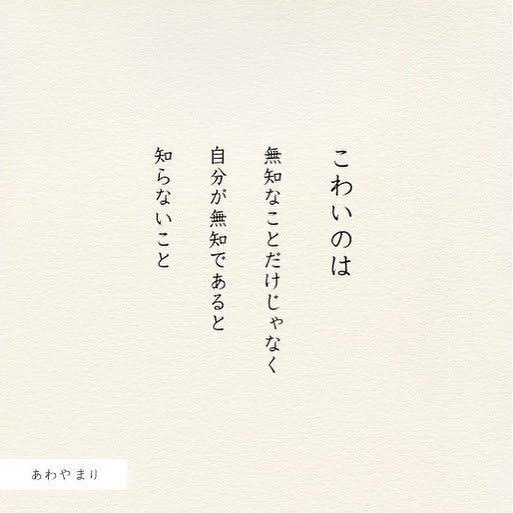 こわいのは
無知なことだけじゃなく
自分が無知であると
知らないこと
あわやまり